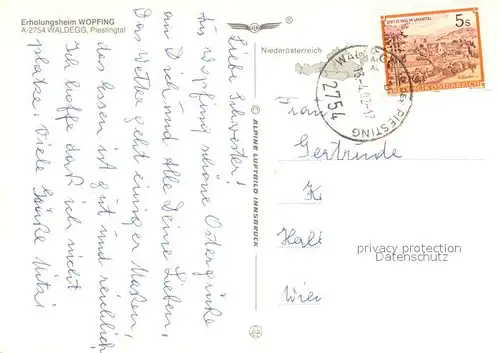 Erholungsheim WOPFING
A-2754 WALDEGG, Piestingtal
Liebe Schwester!
Aus Wopfing schöne Ostergrüße
an Dich und Alle Deine Lieben,
Das Wetter geht einiger Maßen,
das Essen ist gut und reichlich
Ich hoffe daß ich nicht
platze. Viele Grüße Mitzi
© ALPINE LUFTBILD INNSBRUCK
Niederösterreich
5s
STIFT ST. PAUL IM LAVANTTAL
REPUBLIK ÖSTERREICH
WALDEGG PIESTING
-4.92-17
2754
Frau
Gertrude
K
Wien
privacy protection
Datenschutz